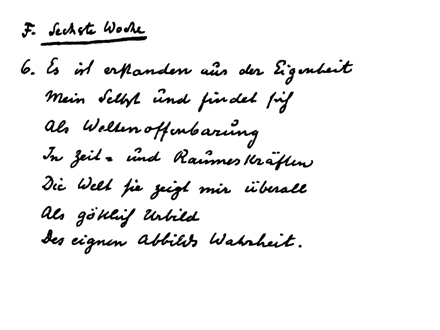 F. Sechste Woche
6. Es ist erstanden aus der Eigenheit
Mein Selbst und findet sich
Als Weltenoffenbarung
In Zeit= und Raumeskräften
Die Welt sie zeigt mir überall
Als göttlich Urbild
Des eignen Abbilds Wahrheit.